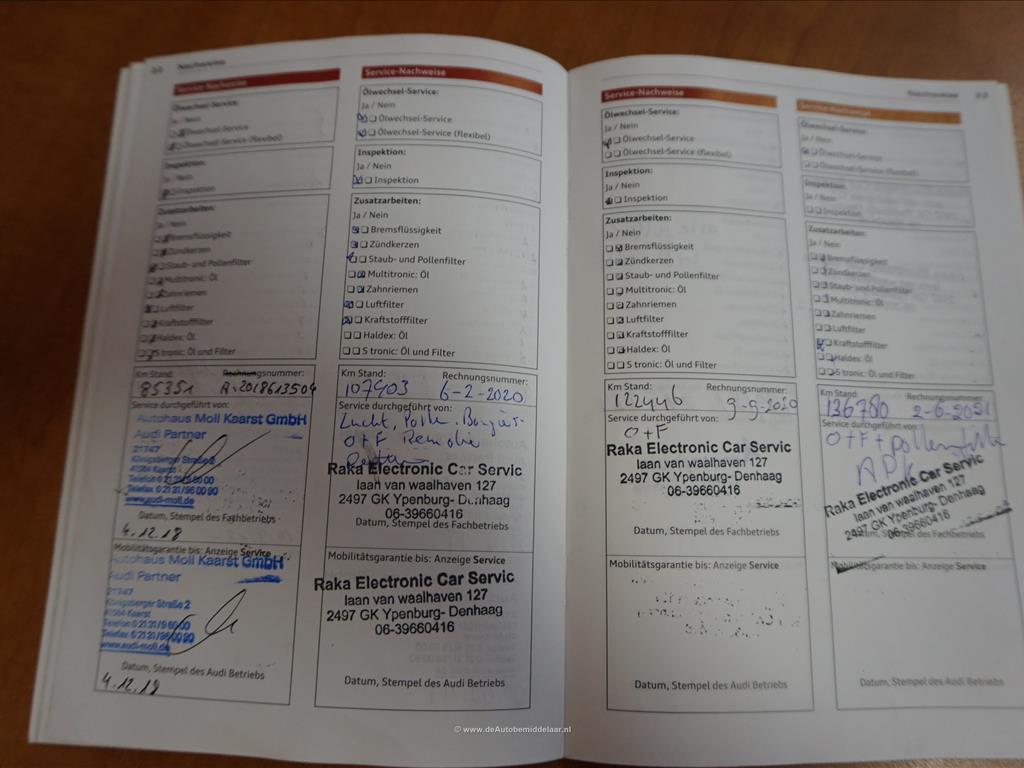 Nachweise
Service-Nachweise
Ölwechsel-Service:
Ja / Nein
Ölwechsel-Service
Ölwechsel-Service (flexibel)
Inspektion:
Ja / Nein
Inspektion
Zusatzarbeiten:
Ja / Nein
Bremsflüssigkeit
Zündkerzen
Staub- und Pollenfilter
Multitronic: Öl
Zahnriemen
Luftfilter
Kraftstofffilter
Haldex: Öl
S tronic: Öl und Filter
Km Stand: Rechnungsnummer:
85351 R.2018613504
Service durchgeführt von:
Autohaus Moll Kaarst GmbH
Audi Partner
21747
Königsberger Straße 2
41564 Kaarst
Telefon 0 21 31/9 60 00
Telefax 0 21 31/96 00 90
www.audi-moll.de
Datum, Stempel des Fachbetriebs
4.12.18
Mobilitätsgarantie bis: Anzeige Service
Autohaus Moll Kaarst GmbH
Audi Partner
Königsberger Straße 2
41564 Kaarst
Telefon 0 21 31/9 60 00
Telefax 0 21 31/96 00 90
www.audi-moll.de
Datum, Stempel des Audi Betriebs
4.12.19
Service-Nachweise
Ölwechsel-Service:
Ja / Nein
Ölwechsel-Service
Ölwechsel-Service (flexibel)
Inspektion:
Ja / Nein
Inspektion
Zusatzarbeiten:
Ja / Nein
Bremsflüssigkeit
Zündkerzen
Staub- und Pollenfilter
Multitronic: Öl
Zahnriemen
Luftfilter
Kraftstofffilter
Haldex: Öl
S tronic: Öl und Filter
Km Stand: Rechnungsnummer:
107403 6-2-2020
Service durchgeführt von:
O+F
Raka Electronic Car Servic
laan van waalhaven 127
2497 GK Ypenburg- Denhaag
06-39660416
Datum, Stempel des Fachbetriebs
Mobilitätsgarantie bis: Anzeige Service
Raka Electronic Car Servic
laan van waalhaven 127
2497 GK Ypenburg- Denhaag
06-39660416
Datum, Stempel des Audi Betriebs
Service-Nachweise
Ölwechsel-Service:
Ja / Nein
Ölwechsel-Service
Ölwechsel-Service (flexibel)
Inspektion:
Ja / Nein
Inspektion
Zusatzarbeiten:
Ja / Nein
Bremsflüssigkeit
Zündkerzen
Staub- und Pollenfilter
Multitronic: Öl
Zahnriemen
Luftfilter
Kraftstofffilter
Haldex: Öl
S tronic: Öl und Filter
Km Stand: Rechnungsnummer:
122446 9-9-2020
Service durchgeführt von:
O+F
Raka Electronic Car Servic
laan van waalhaven 127
2497 GK Ypenburg- Denhaag
06-39660416
Datum, Stempel des Fachbetriebs
Mobilitätsgarantie bis: Anzeige Service
Datum, Stempel des Audi Betriebs
Nachweise
Service-Nachweise
Ölwechsel-Service:
Ja / Nein
Ölwechsel-Service
Ölwechsel-Service (flexibel)
Inspektion:
Ja / Nein
Inspektion
Zusatzarbeiten:
Ja / Nein
Bremsflüssigkeit
Zündkerzen
Staub- und Pollenfilter
Multitronic: Öl
Zahnriemen
Luftfilter
Kraftstofffilter
Haldex: Öl
S tronic: Öl und Filter
Km Stand: Rechnungsnummer:
136780 2-6-2021
Service durchgeführt von:
O+F+
APK
Raka Electronic Car Servic
laan van waalhaven 127
2497 GK Ypenburg- Denhaag
06-39660416
Datum, Stempel des Fachbetriebs
Mobilitätsgarantie bis: Anzeige Service
Datum, Stempel des Audi Betriebs
© www.deAutobemiddelaar.nl